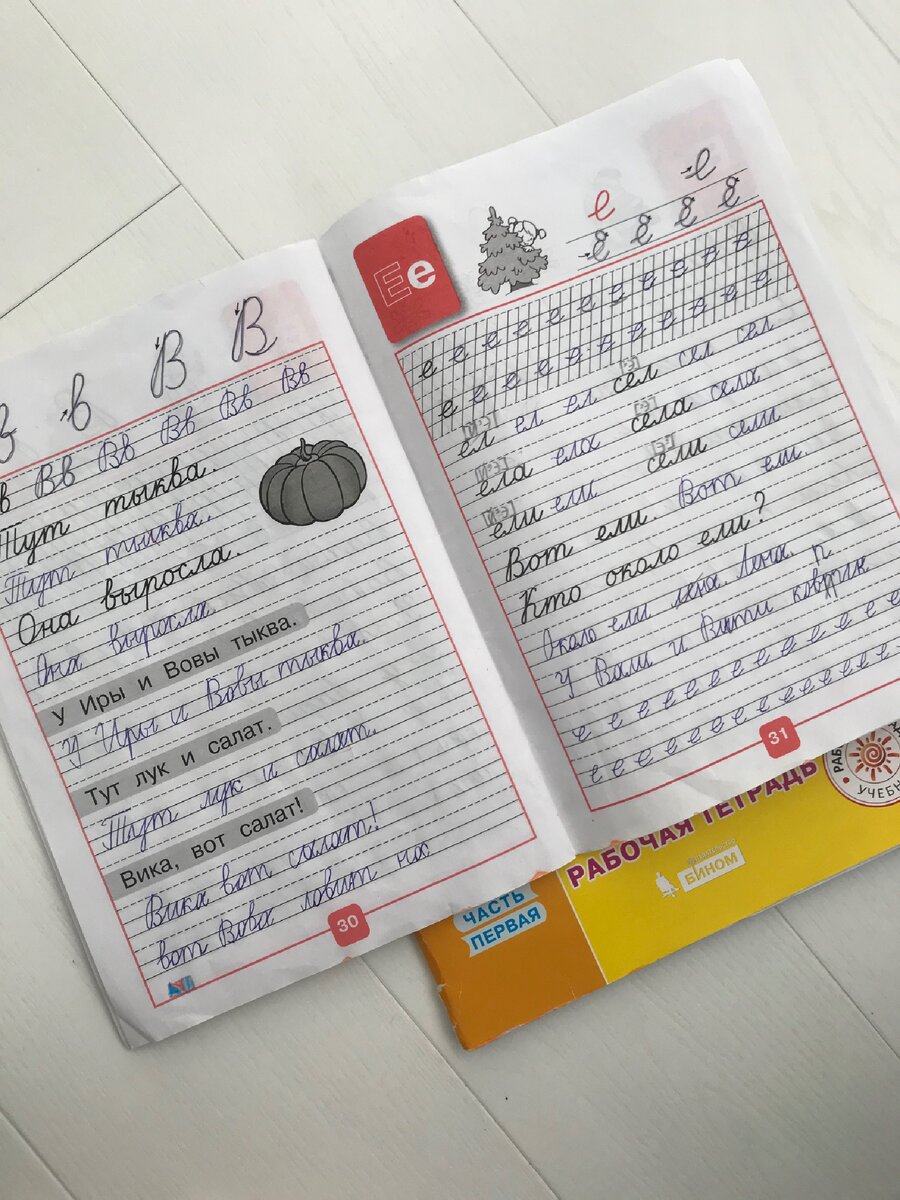 в в В В
в Вв Вв Вв Вв Вв
Тут тыква.
Тут тыква.
Она выросла.
Она выросла.
У Иры и Вовы тыква.
У Иры и Вовы тыква.
Тут лук и салат.
Тут лук и салат.
Вика, вот салат!
Вика вот салат!
вот Вова ловит
30
Ее
е е
е е е е
е е е е е е е е е е е
е е е е е е е е е е е
ел ел ел сел сел сел
ела ела села села
ели ели сели сели
Вот ели. Вот ели.
Кто около ели?
Около ели Лена.
У Вали и Вити коврик
е е е е е е е е е е е е е е
е е е е е е е е е е е е е е е
31
РАБОЧАЯ ТЕТРАДЬ
БИНОМ
ЧАСТЬ
ПЕРВАЯ